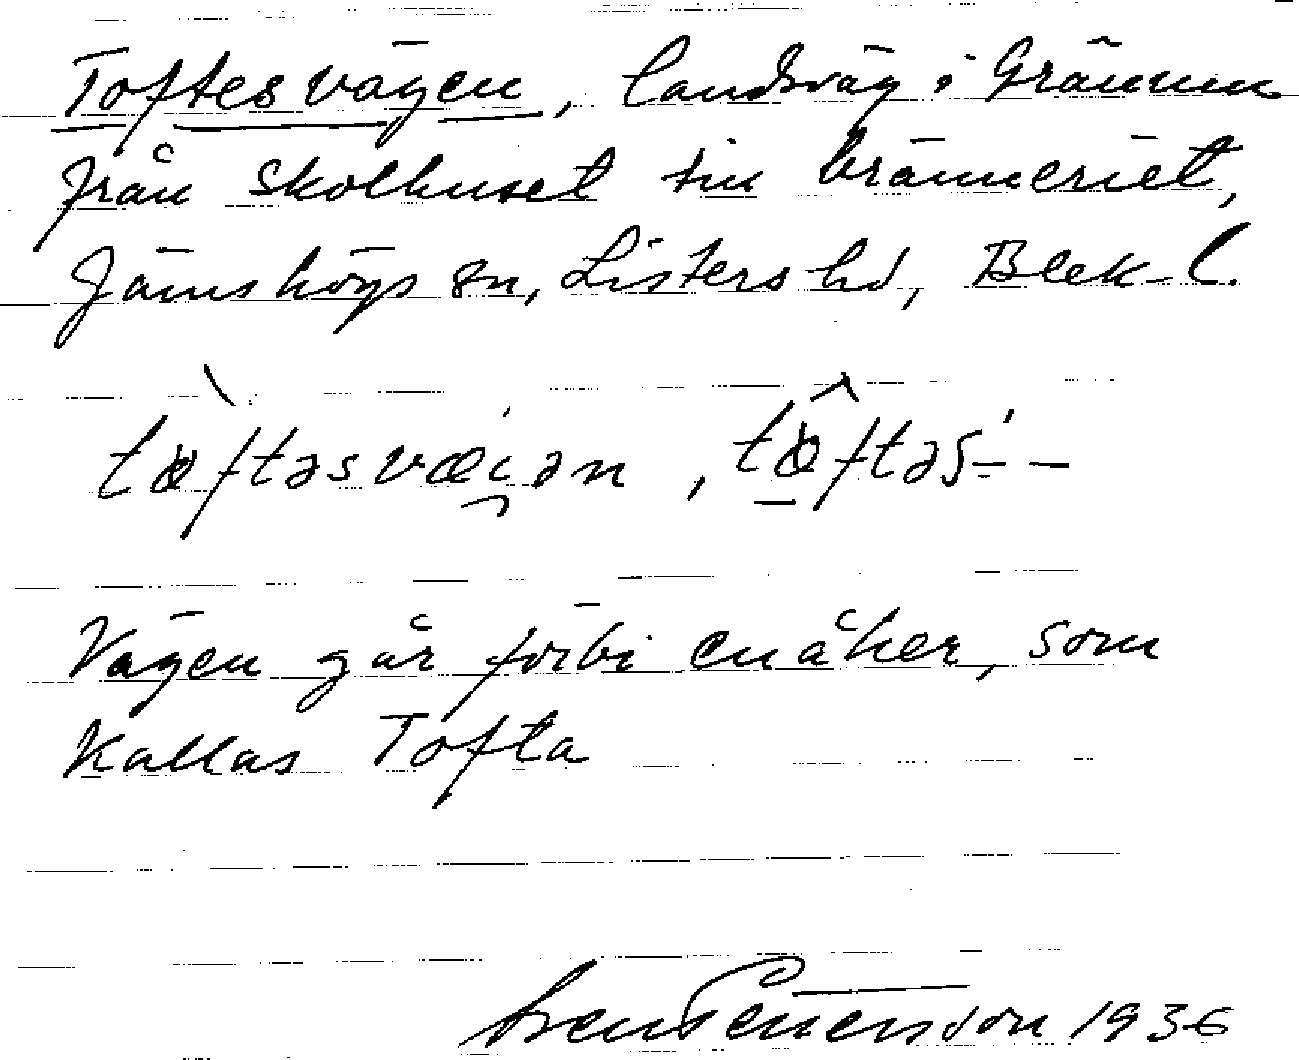 Toftesvägen, landsväg i Grännum
från skolhuset till bränneriet,
Jämshögs sn, Listers hd, Blek. l.
tœftəsvæi̯ən, tœ̂ftəs- –
Vägen går förbi en åker, som
kallas Tofta
Sven Petersson 1936